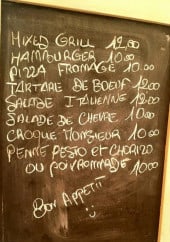 MIXED GRILL 12.00
HAMBURGER 10.00
PIZZA FROMAGE 10.00
TARTARE DE BOEUF 12.00
SALADE ITALIENNE 12.00
SALADE DE CHEVRE 10.00
CROQUE MONSIEUR 10.00
PENNE PESTO ET CHORIZO
OU POIVRONNADE 10.00
BON APPETIT
:)